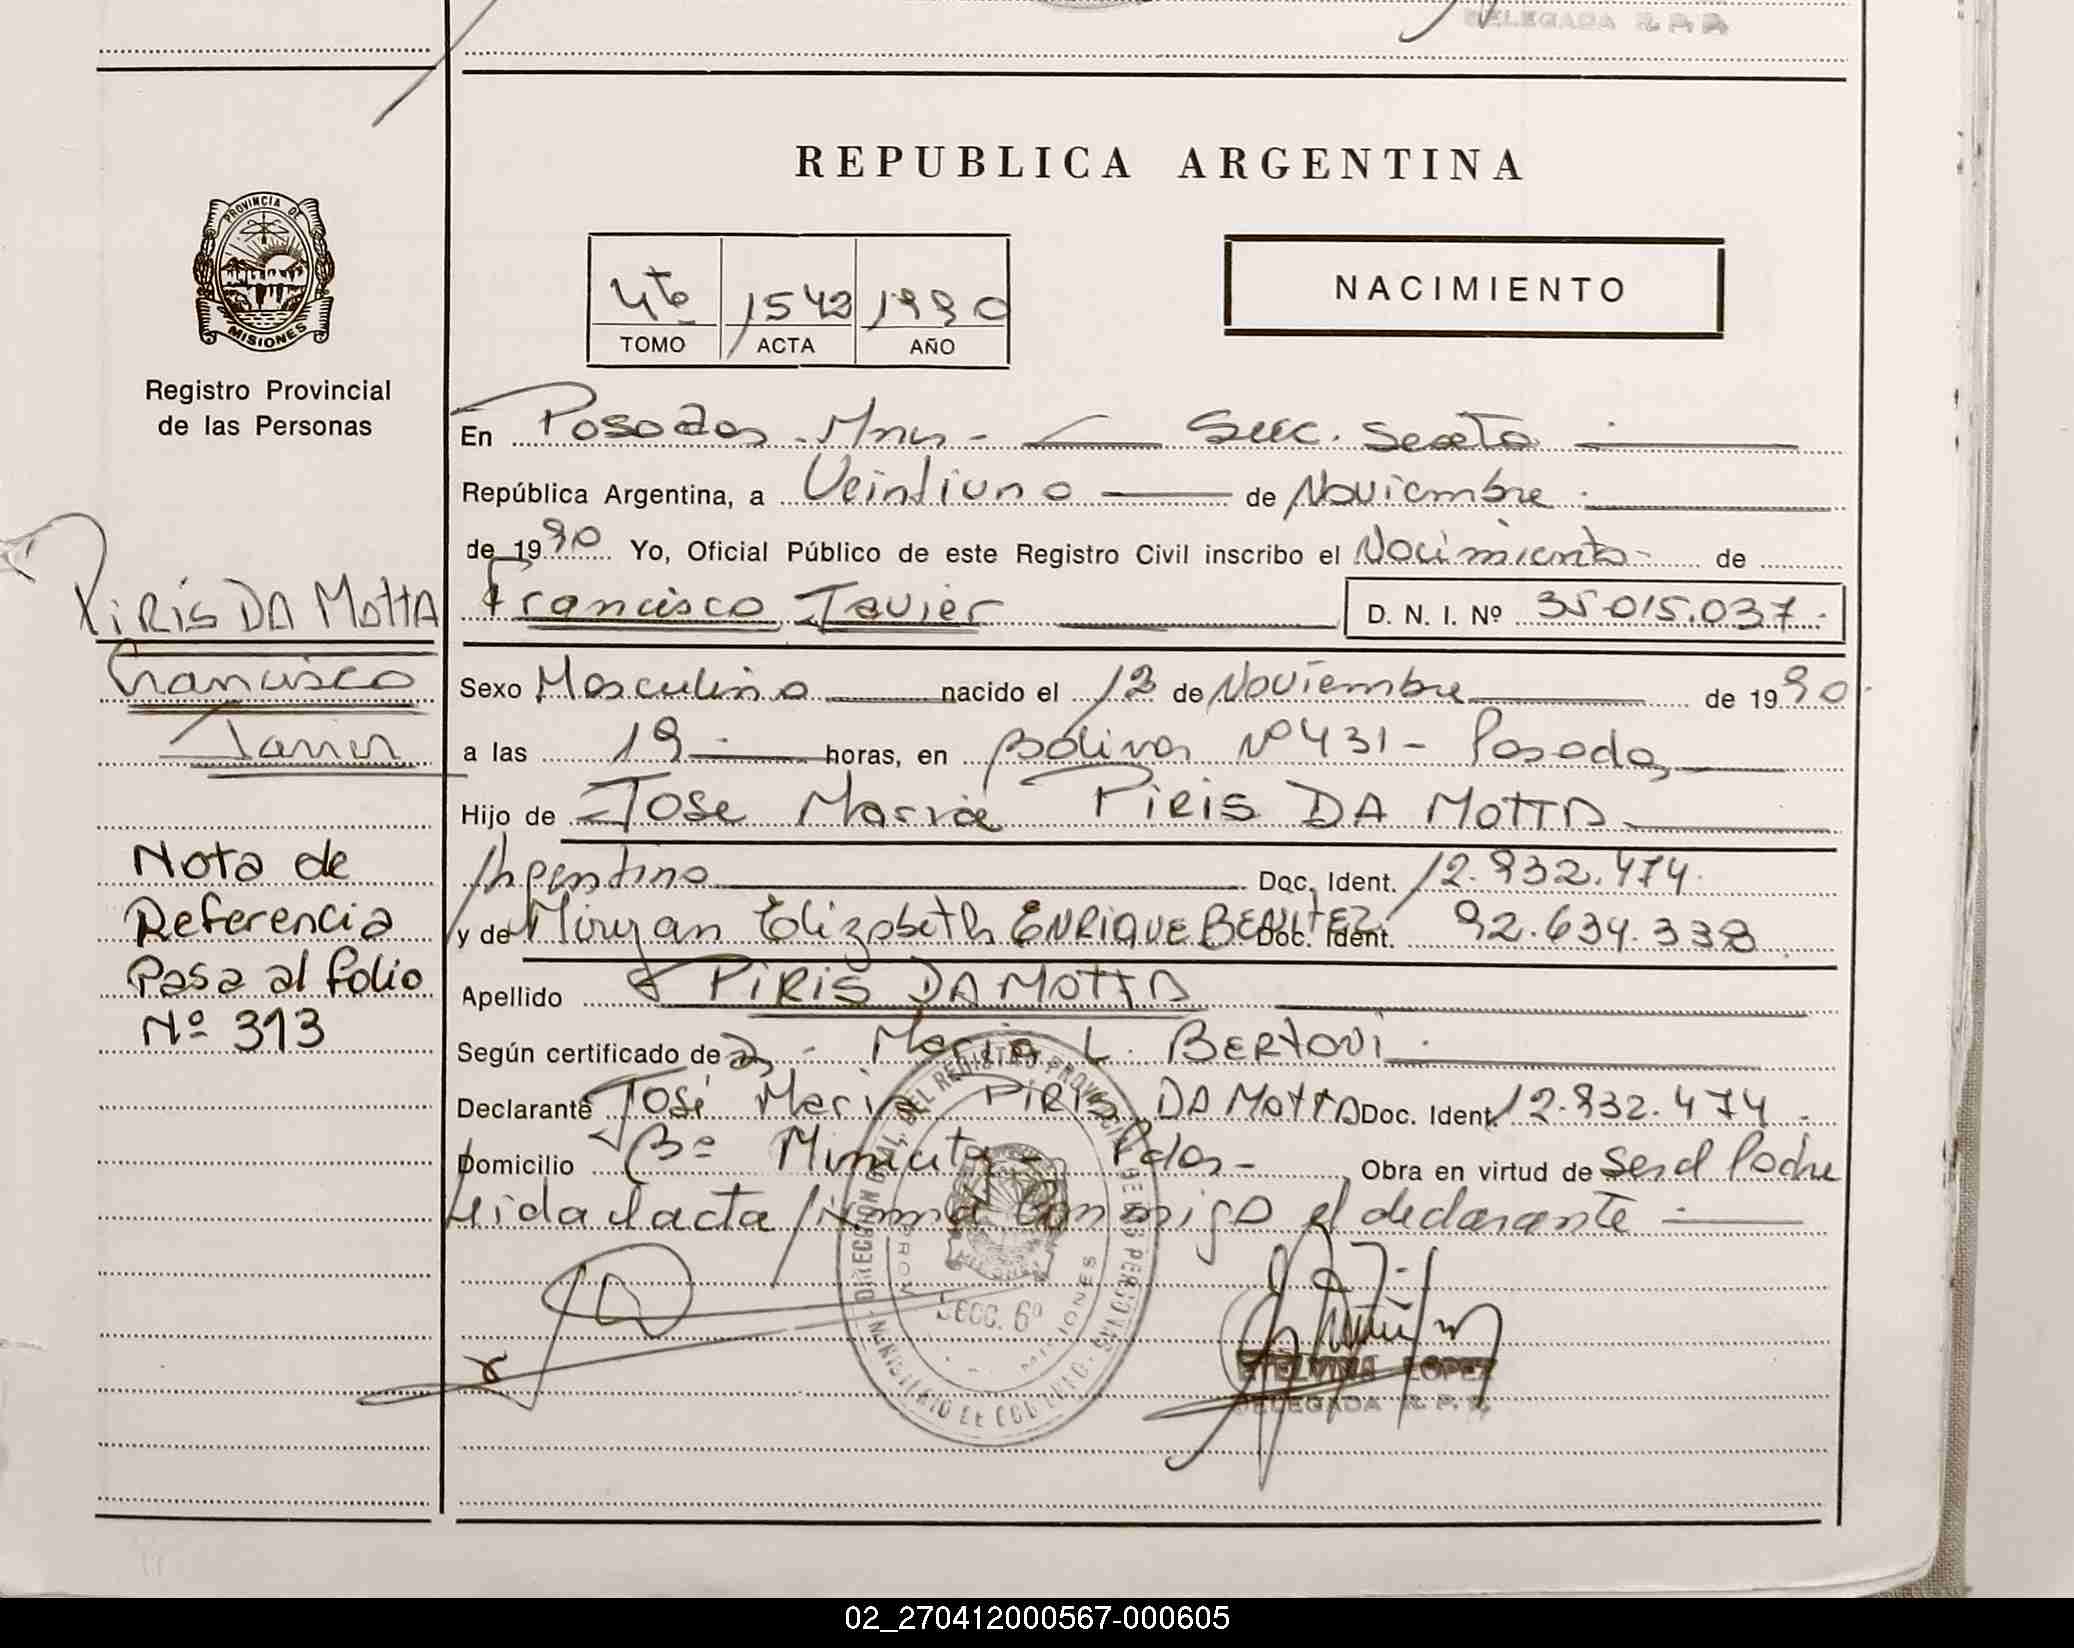 DELEGADA R.P.P.
REPUBLICA ARGENTINA
PROVINCIA DE
MISIONES
Registro Provincial
de las Personas
4to 1542 1990
TOMO ACTA AÑO
NACIMIENTO
En Posadas - Mnes - Secc. Sexta
República Argentina, a Veintiuno de Noviembre
de 1990 Yo, Oficial Público de este Registro Civil inscribo el Nacimiento de
Francisco Javier D. N. I. Nº 35.015.037.
PiRiS DA MOTTA
Francisco
Javier
Sexo Masculino nacido el 12 de Noviembre de 1990.
a las 19 horas, en Bolivar Nº 431 - Posadas
Hijo de Jose Maria PIRIS DA MOTTA
Argentino Doc. Ident. 12.932.474.
y de Miryan Elizabeth ENRIQUE BENITEZ Doc. Ident. 92.634.338
Apellido PIRIS DA MOTTA
Según certificado de Maria L. BERTONI
Declarante José Maria PIRIS DA MOTTA Doc. Ident. 12.932.474.
Domicilio Bº Pdas - Obra en virtud de Ser el Padre
Leida el acta firma conmigo el declarante
Nota de
Referencia
Pasa al folio
Nº 313
DIRECCION GRAL. DEL REGISTRO PROVINCIAL DE LAS PERSONAS
SECC. 6º
MISIONES
ETELVINA LOPEZ
DELEGADA R. P. P.
02_270412000567-000605